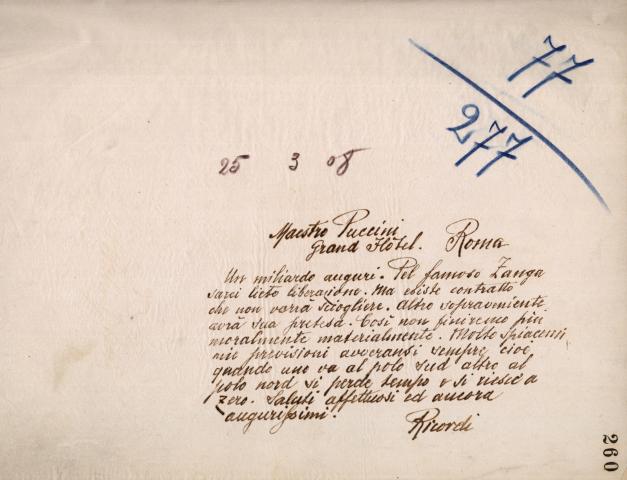 77
277
25 3 08
Maestro Puccini
Grand Hôtel. Roma
Un miliardo auguri. Pel famoso Zanga
sarei lieto liberazione. Ma esiste contratto
che non vorrà sciogliere. Altro sopravveniente
avrà sua pretesa. Così non finiremo più
moralmente materialmente. Molto spiacenti
mie previsioni avveransi sempre cioè
quando uno va al polo sud altro al
polo nord si perde tempo o si riesce a
zero. Saluti affettuosi ed ancora
augurissimi.
Ricordi
260